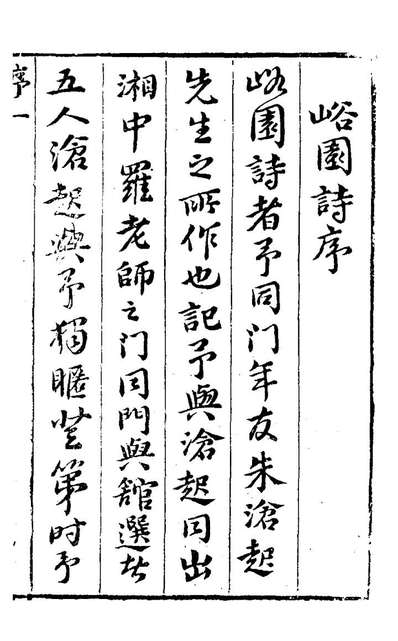 峪園詩序
峪園詩者予同门年友朱滄起
先生之所作也記予與滄起同出
湘中羅老師之门同門與舘選者
五人滄起與予獨暱登第时予
序一